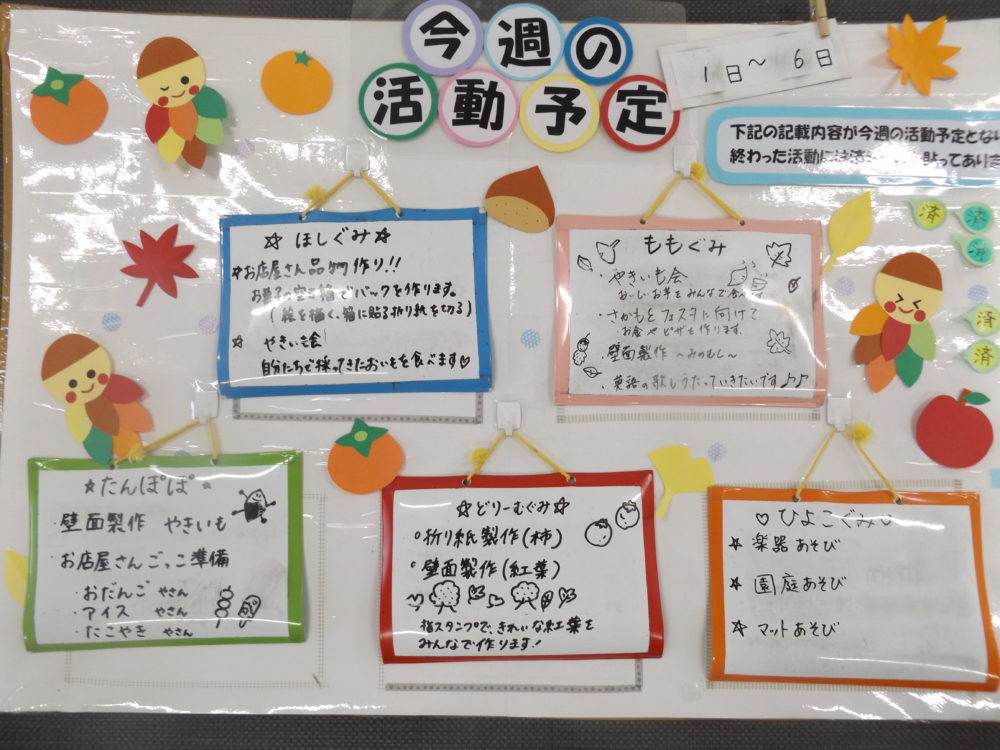 今週の
活動予定
1日～6日
下記の記載内容が今週の活動予定とな
終わった活動には済 貼ってありま
済
済
済
済
済
☆ほしぐみ☆
☆お店屋さん品物作り!!
お菓子の空き箱でバックを作ります。
(絵を描く、箱に貼る折り紙を切る)
☆やきいも会
自分たちで採ってきたおいもを食べます♡
ももぐみ
・やきいも会
おいしいお芋をみんなで食べ
・さかもとフェスタに向けて
お金やピザを作ります。
・壁面製作 ～みのむし～
・英語の歌もうたっていきたいです♪♪
☆たんぽぽ☆
・壁面製作 やきいも
・お店屋さんごっこ準備
・おだんごやさん
・アイスやさん
・たこやきやさん
☆どりーむぐみ☆
○折り紙製作(柿)
○壁面製作(紅葉)
指スタンプで、きれいな紅葉を
みんなで作ります!
♡ひよこぐみ♡
☆楽器あそび
☆園庭あそび
☆マットあそび